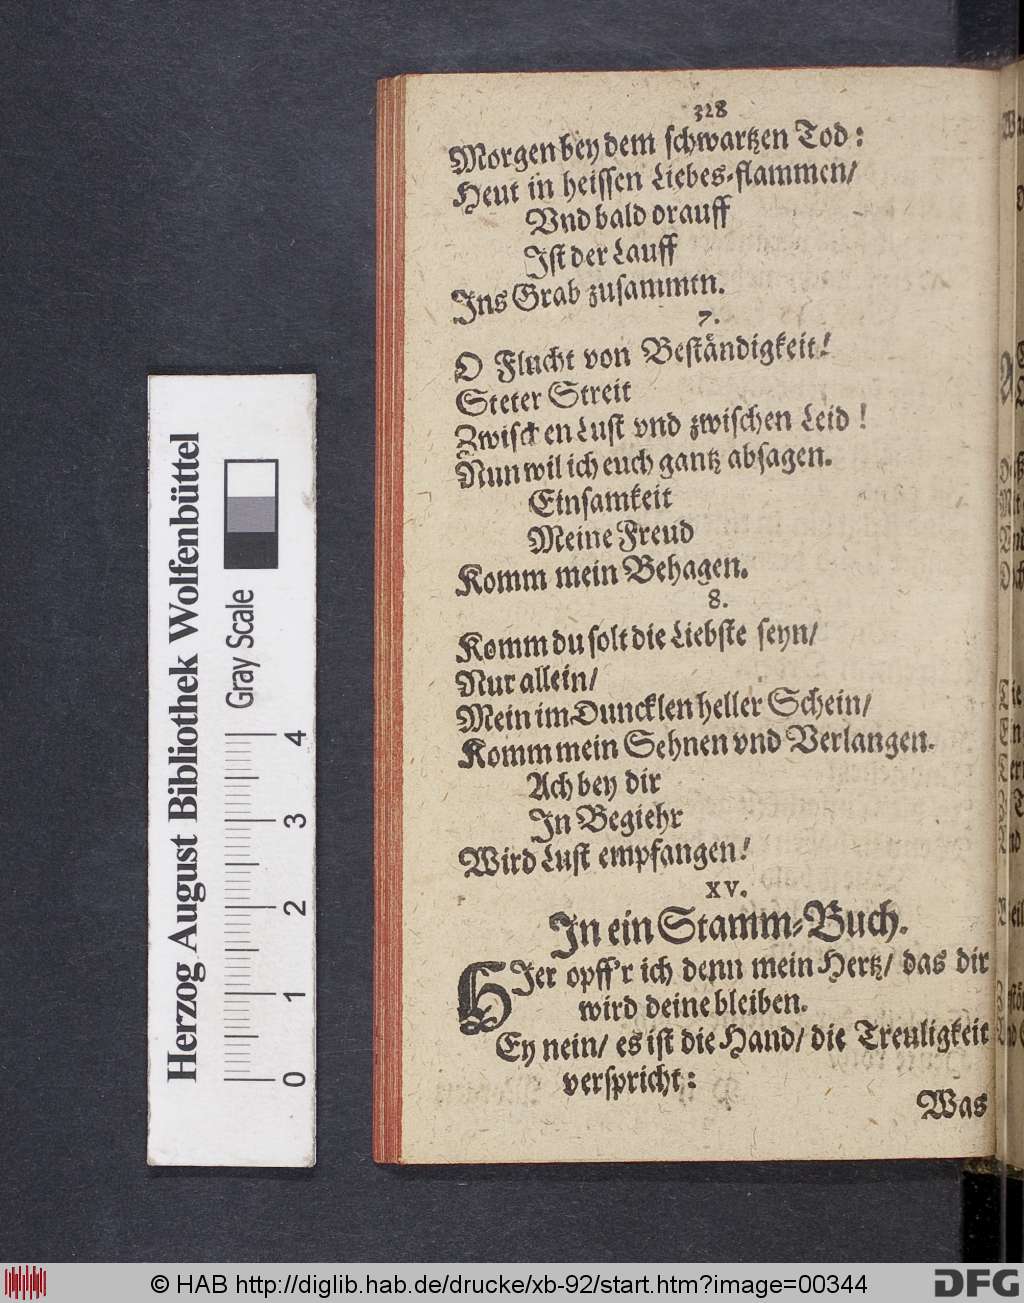 328
Morgen bey dem schwartzen Tod:
Heut in heissen Liebes-flammen/
Vnd bald drauff
Ist der Lauff
Ins Grab zusammen.
7.
O Flucht von Beständigkeit!
Steter Streit
Zwischen Lust vnd zwischen Leid!
Nun wil ich euch gantz absagen.
Einsamkeit
Meine Freud
Komm mein Behagen.
8.
Komm du solt die Liebste seyn/
Nur allein/
Mein im Duncklen heller Schein/
Komm mein Sehnen vnd Verlangen.
Ach bey dir
In Begiehr
Wird Lust empfangen!
XV.
In ein Stamm-Buch.
HIer opff'r ich denn mein Hertz/ das dir
wird deine bleiben.
Ey nein/ es ist die Hand/ die Treuligkeit
verspricht:
Was
Herzog August Bibliothek Wolfenbüttel
Gray Scale
0 1 2 3 4
© HAB http://diglib.hab.de/drucke/xb-92/start.htm?image=00344
DFG